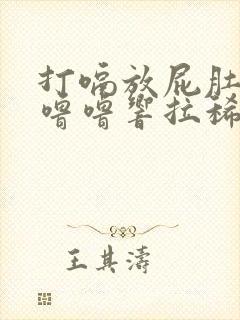 打嗝放屁肚
噜噜響拉稀
王其濤